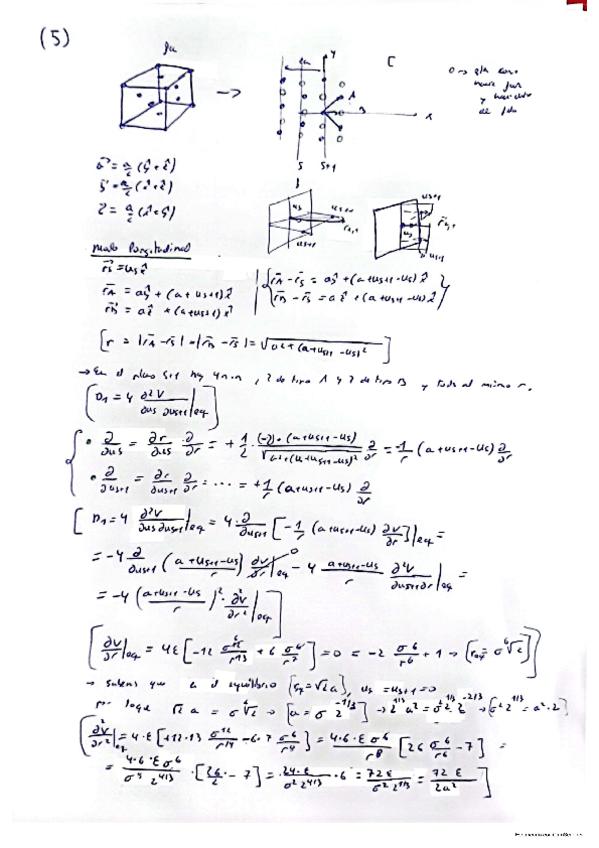 (5)
2a
→
2a
y
C
A
B
x
S S+1
a⃗ = a/2 (ŷ + ẑ)
b⃗ = a/2 (x̂ + ẑ)
c⃗ = a/2 (x̂ + ŷ)
Us
Us+1
Modo longitudinal
r⃗s = us x̂
r⃗A = aŷ + (a + us+1) x̂
r⃗B = aẑ + (a + us+1) x̂
{ r⃗A − r⃗s = aŷ + (a + us+1 − us) x̂
r⃗B − r⃗s = aẑ + (a + us+1 − us) x̂ }
[ r = |r⃗A − r⃗s| = |r⃗B − r⃗s| = √(a² + (a + us+1 − us)²) ]
→ En el plano S+1 hay 4 n.n, 2 de tipo A y 2 de tipo B y todos al mismo r.
[ D1 = 4 ∂²V/∂us ∂us+1 |eq ]
• ∂/∂us = ∂r/∂us · ∂/∂r = + 1/2 · (−2) · (a + us+1 − us) / √(a² + (a + us+1 − us)²) ∂/∂r = −1/r (a + us+1 − us) ∂/∂r
• ∂/∂us+1 = ∂r/∂us+1 ∂/∂r = ... = +1/r (a + us+1 − us) ∂/∂r
[ D1 = 4 ∂²V/∂us ∂us+1 |eq = 4 · ∂/∂us+1 [ −1/r (a + us+1 − us) ∂V/∂r ] |eq =
= −4 ∂/∂us+1 ( a + us+1 − us / r ) ∂V/∂r |eq 0 − 4 a + us+1 − us / r ∂²V/∂us+1 ∂r |eq =
= −4 ( a + us+1 − us / r )² · ∂²V/∂r² |eq ]
[ ∂V/∂r |eq = 4ε [ −12 σ¹²/r¹³ + 6 σ⁶/r⁷ ] = 0 = −2 σ⁶/r⁶ + 1 → [ req = σ ⁶√2 ] ]
→ Sabemos que en el equilibrio [ req = √2 a ], us = us+1 = 0
por lo que √2 a = σ ⁶√2 → [ a = σ 2^(−1/3) ] → 2^(1/3) a² = σ² 2^(1/3) 2^(−2/3) → [ σ² 2^(1/3) = a² · 2 ]
[ ∂²V/∂r² |eq = 4 · ε [ +12 · 13 σ¹²/r¹⁴ − 6 · 7 σ⁶/r⁸ ] = 4 · 6 · ε σ⁶ / r⁸ [ 26 σ⁶/r⁶ − 7 ] =
= 4 · 6 · ε σ⁶ / σ⁸ 2^(4/3) · [ 26/2 − 7 ] = 24 · ε / σ² 2^(4/3) · 6 = 72 ε / σ² 2^(1/3) = 72 ε / 2a² ]